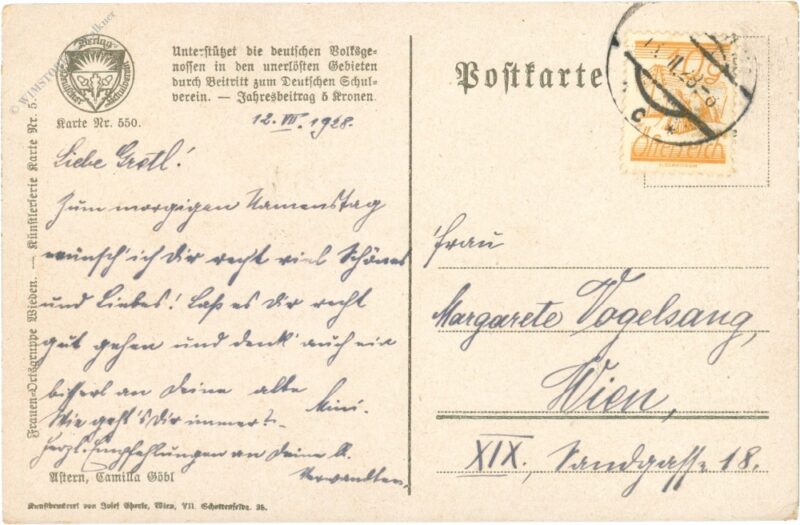 Verlag
Deutscher Schulverein
Karte Nr. 550.
Unterstützet die deutschen Volksge-
nossen in den unerlösten Gebieten
durch Beitritt zum Deutschen Schul-
verein. — Jahresbeitrag 5 Kronen.
12. VII. 1928.
Liebe Gretl!
Zum morgigen Namenstag
wünsch' ich Dir recht viel Schönes
und Liebes! Laß es Dir recht
gut gehen und denk' auch ein
bisserl an Deine alte
Mimi.
Wie geht's Dir immer?
Herzl. Empfehlungen an Deine
Verwandten.
Astern, Camilla Göbl
Kunstdruckerei von Josef Eberle, Wien, VII. Schottenfeldg. 38.
Frauen-Ortsgruppe Wieden. — Künstlerserie Karte Nr. 5.
Postkarte
Österreich
C *
Frau
Margarete Vogelsang,
Wien,
XIX. Sandgasse 18.